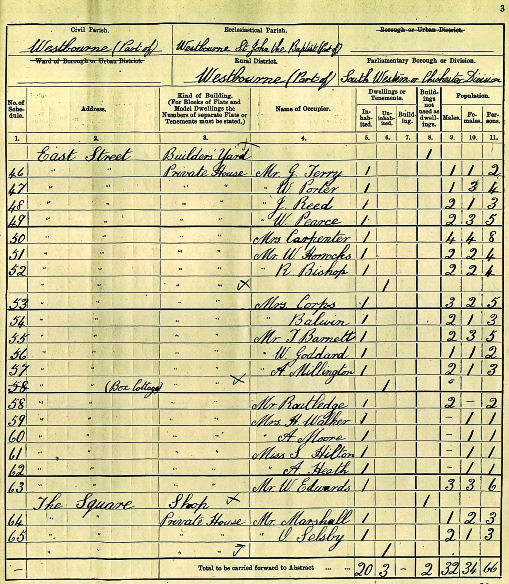 3
Civil Parish. Ecclesiastical Parish. Borough or Urban District.
Westbourne (Part of) Westbourne St John the Baptist (Part of)
Ward of Borough or Urban District. Rural District. Parliamentary Borough or Division.
Westbourne (Part of) South Western or Chichester Division
No. of Schedule. Address. Kind of Building. (For Blocks of Flats and Model Dwellings the Numbers of separate Flats or Tenements must be stated.) Name of Occupier. Dwellings or Tenements. Inhabited. Uninhabited. Building. Buildings not used as dwellings. Population. Males. Females. Persons.
1. 2. 3. 4. 5. 6. 7. 8. 9. 10. 11.
East Street Builders Yard 1
46 " " Private House Mr G. Terry 1 1 1 2
47 " " " " " W Porter 1 1 3 4
48 " " " " " J Reed 1 2 1 3
49 " " " " " W. Pearce 1 2 3 5
50 " " " " Mrs Carpenter 1 4 4 8
51 " " " " Mr. W. Horrocks 1 2 2 4
52 " " " " " R Bishop 1 2 2 4
" " " " x 1
53 " " " " Mrs. Corps 1 3 2 5
54 " " " " " Balwin 1 2 1 3
55 " " " " Mr T Barnett 1 2 3 5
56 " " " " " W. Goddard 1 1 1 2
57 " " " " " A Millington 1 2 1 3
58 " " (Box Cottage) " " x 1
58 " " " " Mr Routledge 1 2 - 2
59 " " " " Mrs. H. Walker 1 - 1 1
60 " " " " " A Moore 1 - 1 1
61 " " " " Miss S Hilton 1 - 1 1
62 " " " " " A. Heath 1 - 1 1
63 " " " " Mr W Edwards 1 3 3 6
The Square Shop x 1
64 " " Private House Mr. Marshall 1 1 2 3
65 " " " " " O Selsby 1 2 1 3
" " " " 1
- Total to be carried forward to Abstract ... 20 3 - 2 32 34 66